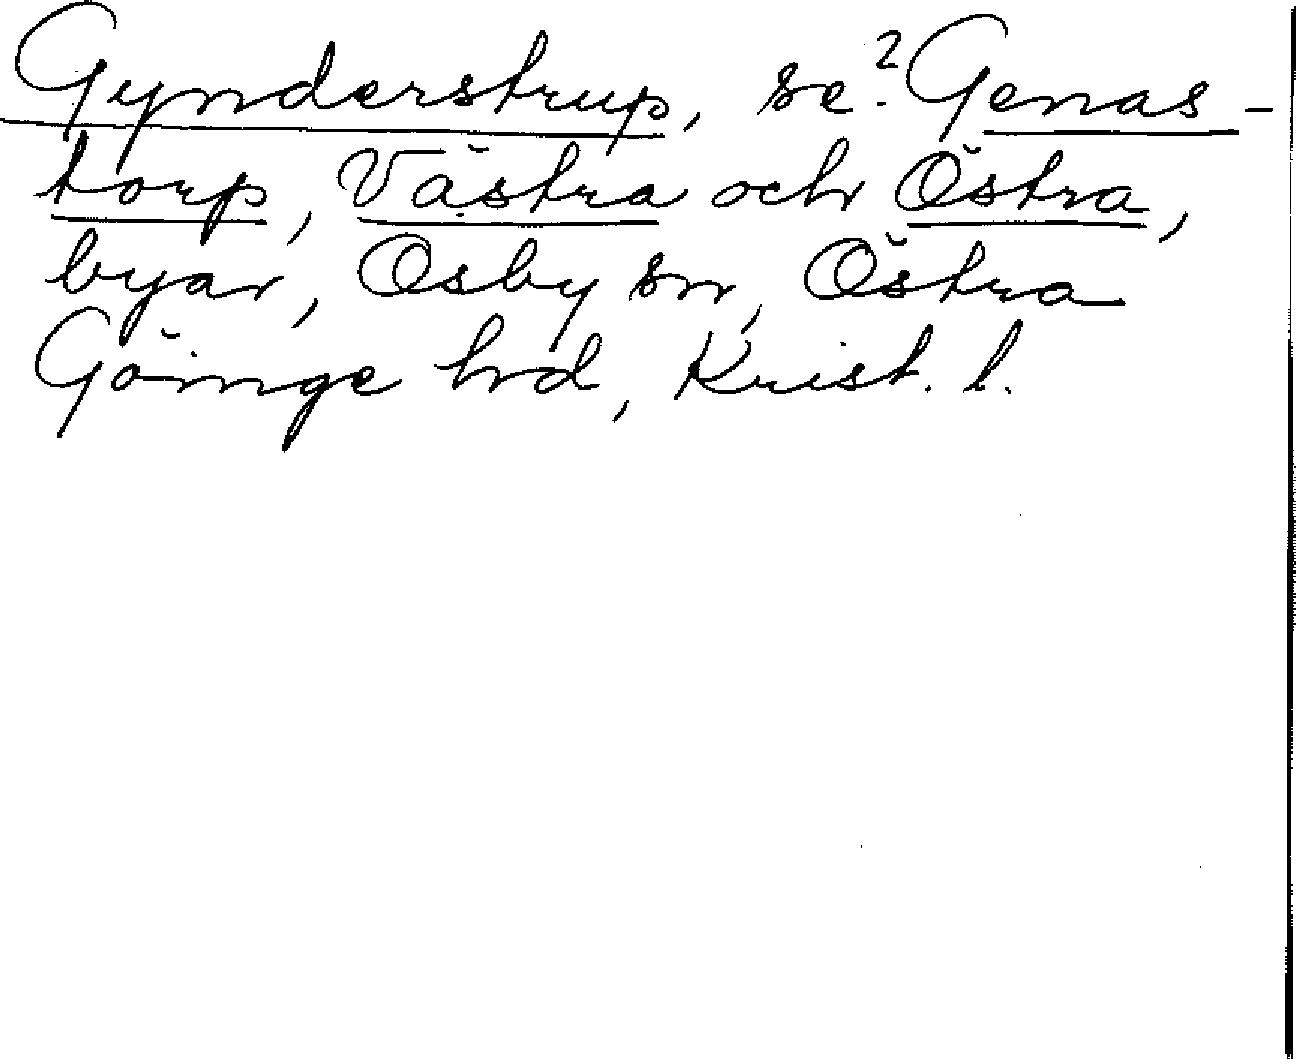 Gynderstrup, se? Genas-
torp, Västra och Östra,
byar, Osby sn, Östra
Göinge hd, Krist. l.